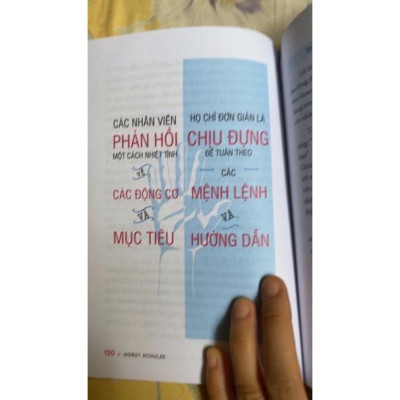 CÁC NHÂN VIÊN
PHẢN HỒI
MỘT CÁCH NHIỆT TÌNH
VÀ
CÁC ĐỘNG CƠ
VÀ
MỤC TIÊU
HỌ CHỈ ĐƠN GIẢN LÀ
CHỊU ĐỰNG
ĐỂ TUÂN THEO
CÁC
MỆNH LỆNH
VÀ
HƯỚNG DẪN
120 • HORST SCHULZE